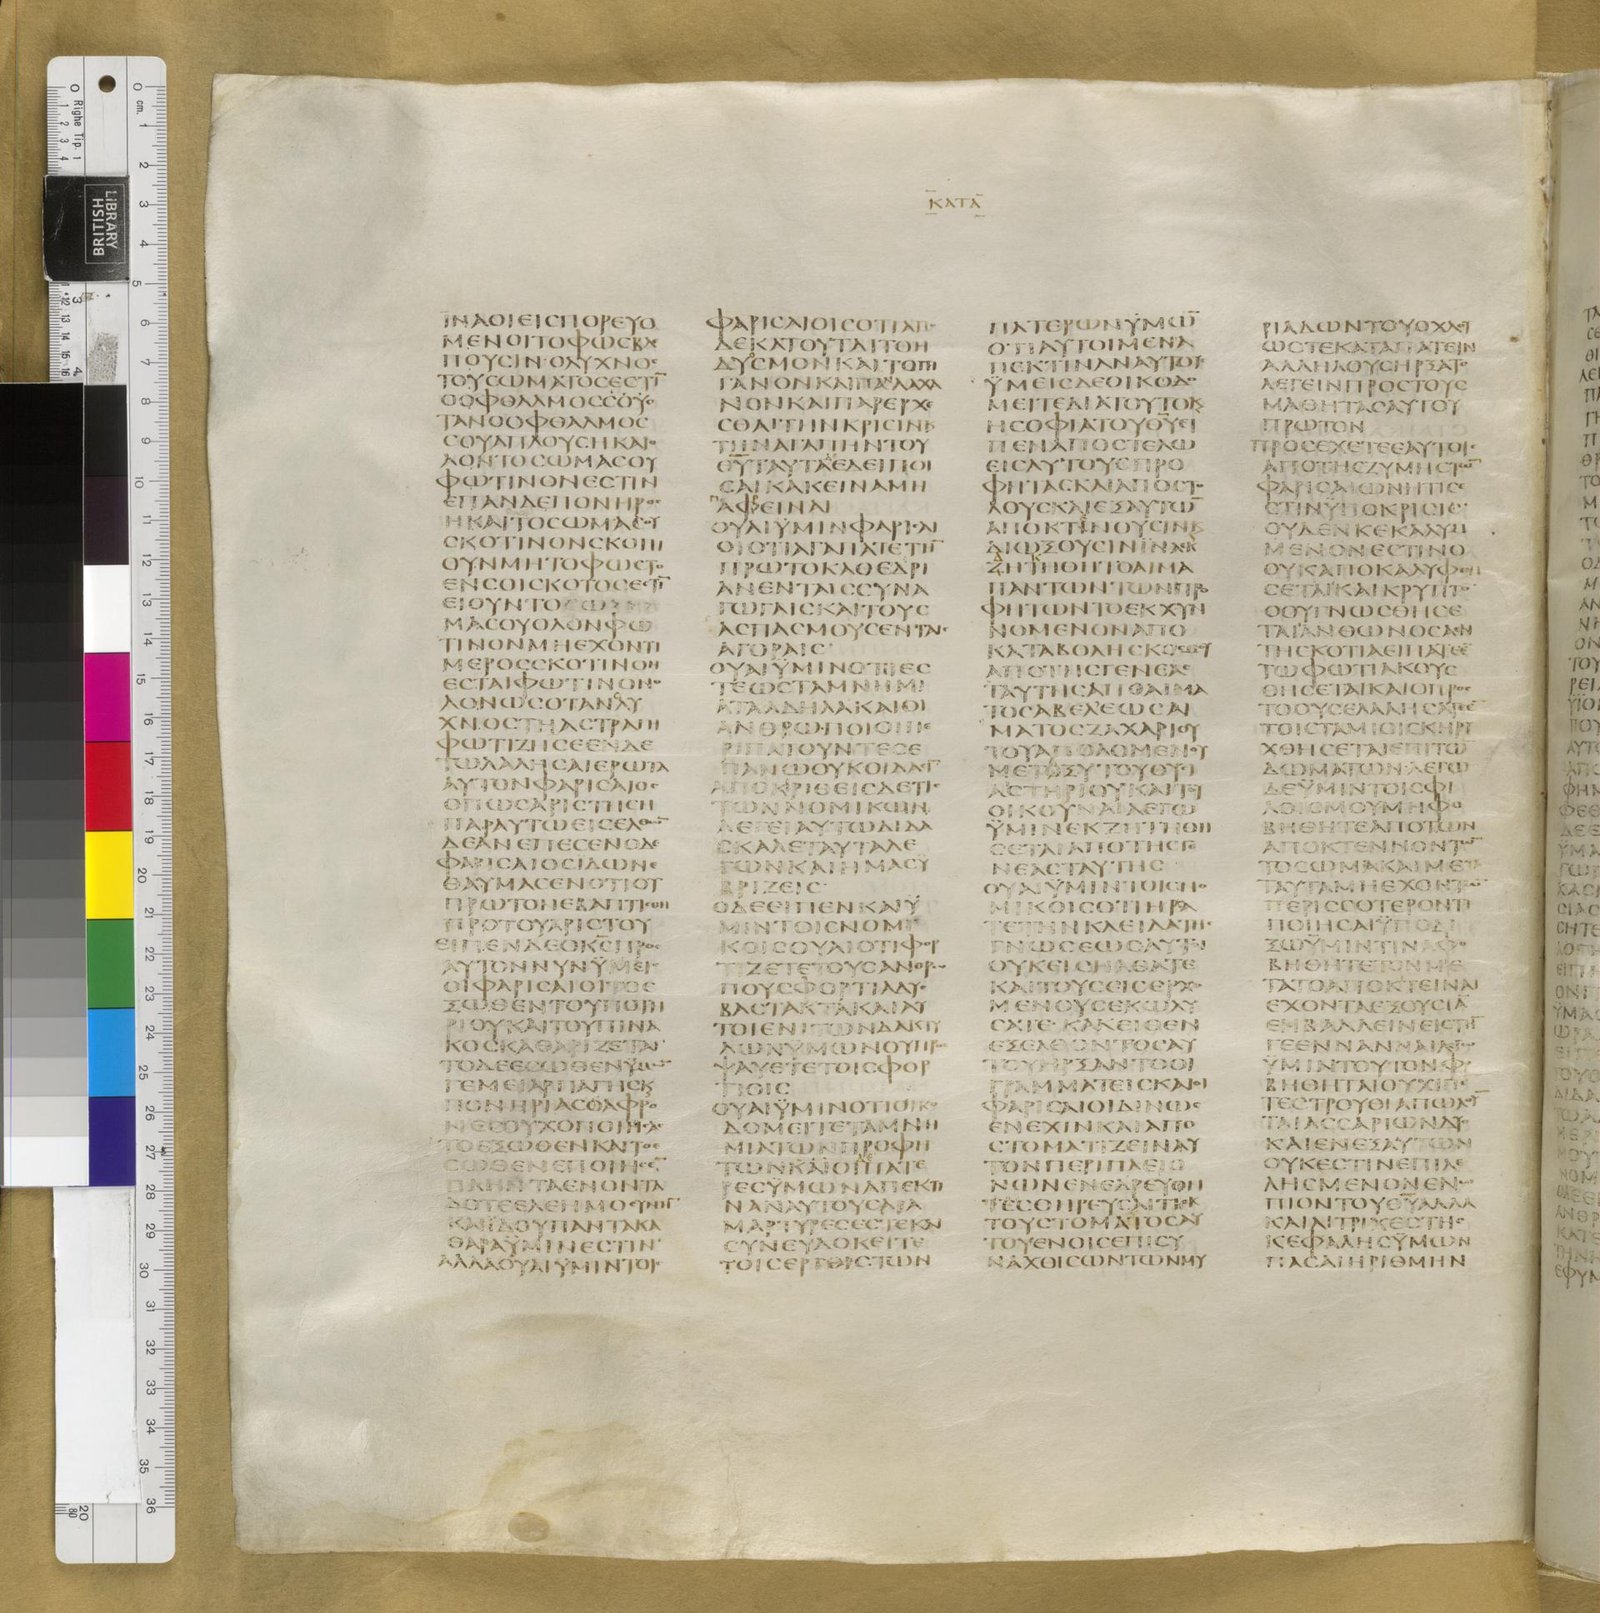 ΚΑΤΑ
ΪΝΑΟΙΕΙCΠΟΡΕΥΟ
ΜΕΝΟΙΤΟΦΩCΒΛΕ
ΠΟΥCΙΝ·ΟΛΥΧΝΟC
ΤΟΥCΩΜΑΤΟCΕCΤΙ̅
ΟΟΦΘΑΛΜΟCCΟΥΟ
ΤΑΝΟΟΦΘΑΛΜΟC
CΟΥΑΠΛΟΥCΗΚΑΙΟ
ΛΟΝΤΟCΩΜΑCΟΥ
ΦΩΤΙΝΟΝΕCΤΙΝ
ΕΠΑΝΔΕΠΟΝΗΡΟC
ΗΚΑΙΤΟCΩΜΑCΟΥ
CΚΟΤΙΝΟΝCΚΟΠΙ
ΟΥΝΜΗΤΟΦΩCΤΟ
ΕΝCΟΙCΚΟΤΟCΕCΤΙ̅
ΕΙΟΥΝΤΟCΩ
ΜΑCΟΥΟΛΟΝΦΩ
ΤΙΝΟΝΜΗΕΧΟΝΤΙ
ΜΕΡΟCCΚΟΤΙΝΟΝ
ΕCΤΑΙΦΩΤΙΝΟΝΟ
ΛΟΝΩCΟΤΑΝΟΛΥ
ΧΝΟCΤΗΑCΤΡΑΠΗ
ΦΩΤΙΖΗCΕΕΝΔΕ
ΤΩΛΑΛΗCΑΙΕΡΩΤΑ
ΑΥΤΟΝΦΑΡΙCΑΙΟC
ΟΠΩCΑΡΙCΤΗCΗ
ΠΑΡΑΥΤΩΕΙCΕΛΘΩ̅
ΔΕΑΝΕΠΕCΕΝΟΔΕ
ΦΑΡΙCΑΙΟCΙΔΩΝΕ
ΘΑΥΜΑCΕΝΟΤΙΟΥ
ΠΡΩΤΟΝΕΒΑΠΤΙCΘΗ
ΠΡΟΤΟΥΑΡΙCΤΟΥ
ΕΙΠΕΝΔΕΟΚ̅C̅ΠΡΟC
ΑΥΤΟΝΝΥΝΫΜΕΙC
ΟΙΦΑΡΙCΑΙΟΙΤΟΕ
ΞΩΘΕΝΤΟΥΠΟΤΗ
ΡΙΟΥΚΑΙΤΟΥΠΙΝΑ
ΚΟCΚΑΘΑΡΙΖΕΤΑΙ
ΤΟΔΕΕCΩΘΕΝΫΜΩ̅
ΓΕΜΕΙΑΡΠΑΓΗCΚ
ΠΟΝΗΡΙΑCΟΑΦΡΟ
ΝΕCΟΥΧΟΠΟΙΗCΑ
ΤΟΕΞΩΘΕΝΚΑΙΤΟΕ
CΩΘΕΝΕΠΟΙΗCΕ̅
ΠΛΗΝΤΑΕΝΟΝΤΑ
ΔΟΤΕΕΛΕΗΜΟCΥΝΗ̅
ΚΑΙΪΔΟΥΠΑΝΤΑΚΑ
ΘΑΡΑΫΜΙΝΕCΤΙΝ
ΑΛΛΑΟΥΑΙΫΜΙΝΤΟΙC
ΦΑΡΙCΑΙΟΙCΟΤΙΑΠΟ
ΔΕΚΑΤΟΥΤΑΙΤΟΗ
ΔΥΟCΜΟΝΚΑΙΤΟΠΗ
ΓΑΝΟΝΚΑΙΠΑΛΛΑΧΑ
ΝΟΝΚΑΙΠΑΡΕΡΧΕ
CΘΑΙΤΗΝΚΡΙCΙΝΚ
ΤΗΝΑΓΑΠΗΝΤΟΥ
Θ̅Υ̅ΤΑΥΤΑΕΔΕΙΠΟΙ
CΑΙΚΑΚΕΙΝΑΜΗ
ΠΑΡΑΦΕΙΝΑΙ
ΟΥΑΙΫΜΙΝΦΑΡΙCΑΙ
ΟΙΟΤΙΑΓΑΠΑΤΕΤΗ̅
ΠΡΩΤΟΚΑΘΕΔΡΙ
ΑΝΕΝΤΑΙCCΥΝΑ
ΓΩΓΑΙCΚΑΙΤΟΥC
ΑCΠΑCΜΟΥCΕΝΤΑΙC
ΑΓΟΡΑΙC
ΟΥΑΙΫΜΙΝΟΤΙΕC
ΤΕΩCΤΑΜΝΗΜΙ
ΑΤΑΑΔΗΛΑΚΑΙΟΙ
ΑΝΘΡΩΠΟΙΟΙΠΕ
ΡΙΠΑΤΟΥΝΤΕCΕ
ΠΑΝΩΟΥΚΟΙΔΑCΙ̅
ΑΠΟΚΡΙΘΕΙCΔΕΤΙC
ΤΩΝΝΟΜΙΚΩΝ
ΛΕΓΕΙΑΥΤΩΔΙΔΑ
CΚΑΛΕΤΑΥΤΑΛΕ
ΓΩΝΚΑΙΗΜΑCΥ
ΒΡΙΖΕΙC
ΟΔΕΕΙΠΕΝΚΑΙΫ
ΜΙΝΤΟΙCΝΟΜΙ
ΚΟΙCΟΥΑΙΟΤΙΦΟΡ
ΤΙΖΕΤΕΤΟΥCΑΝΟΥC
ΠΟΥCΦΟΡΤΙΑΔΥC
ΒΑCΤΑΚΤΑΚΑΙΑΥ
ΤΟΙΕΝΙΤΩΝΔΑΚΤΥ
ΛΩΝΫΜΩΝΟΥΠΡΟC
ΨΑΥΕΤΕΤΟΙCΦΟΡ
ΤΙΟΙC
ΟΥΑΙΫΜΙΝΟΤΙΟΙΚΟ
ΔΟΜΕΙΤΕΤΑΜΝΗ
ΜΙΑΤΩΝΠΡΟΦΗ
ΤΩΝΚΑΙΟΙΠΑΤΕ
ΡΕCΫΜΩΝΑΠΕΚΤΙ
ΝΑΝΑΥΤΟΥCΑΡΑ
ΜΑΡΤΥΡΕCΕCΤΕΚΑΙ
CΥΝΕΥΔΟΚΕΙΤΕ
ΤΟΙCΕΡΓΟΙCΤΩΝ
ΠΑΤΕΡΩΝΫΜΩ̅
ΟΤΙΑΥΤΟΙΜΕΝΑ
ΠΕΚΤΙΝΑΝΑΥΤΟΥC
ΫΜΕΙCΔΕΟΙΚΟΔΟ
ΜΕΙΤΕΔΙΑΤΟΥΤΟΚ
ΗCΟΦΙΑΤΟΥΘ̅Υ̅ΕΙ
ΠΕΝΑΠΟCΤΕΛΩ
ΕΙCΑΥΤΟΥCΠΡΟ
ΦΗΤΑCΚΑΙΑΠΟCΤΟ
ΛΟΥCΚΑΙΕΞΑΥΤΩ̅
ΑΠΟΚΤΕΝΟΥCΙΝΚ
ΔΙΩΞΟΥCΙΝΪΝΑΕΚ
ΖΗΤΗΘΗΤΟΑΙΜΑ
ΠΑΝΤΩΝΤΩΝΠΡΟ
ΦΗΤΩΝΤΟΕΚΧΥΝ
ΝΟΜΕΝΟΝΑΠΟ
ΚΑΤΑΒΟΛΗCΚΟCΜΟΥ
ΑΠΟΤΗCΓΕΝΕΑC
ΤΑΥΤΗCΑΠΟΑΙΜΑ
ΤΟCΑΒΕΛΕΩCΑΙ
ΜΑΤΟCΖΑΧΑΡΙΟΥ
ΤΟΥΑΠΟΛΟΜΕΝΟΥ
ΜΕΤΑΞΥΤΟΥΘΥCΙ
ΑCΤΗΡΙΟΥΚΑΙΤΟΥ
ΟΙΚΟΥΝΑΙΛΕΓΩ
ΫΜΙΝΕΚΖΗΤΗΘΗ
CΕΤΑΙΑΠΟΤΗCΓΕ
ΝΕΑCΤΑΥΤΗC
ΟΥΑΙΫΜΙΝΤΟΙCΝΟ
ΜΙΚΟΙCΟΤΙΗΡΑ
ΤΕΤΗΝΚΛΕΙΔΑΤΗC
ΓΝΩCΕΩCΑΥΤΟΙ
ΟΥΚΕΙCΗΛΘΑΤΕ
ΚΑΙΤΟΥCΕΙCΕΡΧΟ
ΜΕΝΟΥCΕΚΩΛΥ
CΑΤΕ·ΚΑΚΕΙΘΕΝ
ΕΞΕΛΘΟΝΤΟCΑΥ
ΤΟΥΗΡΞΑΝΤΟΟΙ
ΓΡΑΜΜΑΤΕΙCΚΑΙΟΙ
ΦΑΡΙCΑΙΟΙΔΙΝΩC
ΕΝΕΧΙΝΚΑΙΑΠΟ
CΤΟΜΑΤΙΖΕΙΝΑΥ
ΤΟΝΠΕΡΙΠΛΕΙΟ
ΝΩΝΕΝΕΔΡΕΥΟΝ
ΤΕCΘΗΡΕΥCΑΙΤΙΕΚ
ΤΟΥCΤΟΜΑΤΟCΑΥ
ΤΟΥΕΝΟΙCΕΠΙCΥ
ΝΑΧΘΙCΩΝΤΩΝΜΥ
ΡΙΑΔΩΝΤΟΥΟΧΛΟΥ
ΩCΤΕΚΑΤΑΠΑΤΕΙΝ
ΑΛΛΗΛΟΥCΗΡΞΑΤΟ
ΛΕΓΕΙΝΠΡΟCΤΟΥC
ΜΑΘΗΤΑCΑΥΤΟΥ
ΠΡΩΤΟΝ
ΠΡΟCΕΧΕΤΕΕΑΥΤΟΙC
ΑΠΟΤΗCΖΥΜΗCΤΩ̅
ΦΑΡΙCΑΙΩΝΗΤΙC
ΕCΤΙΝΫΠΟΚΡΙCΙC
ΟΥΔΕΝΚΕΚΑΛΥΜ
ΜΕΝΟΝΕCΤΙΝΟ
ΟΥΚΑΠΟΚΑΛΥΦΘΗ
CΕΤΑΙΚΑΙΚΡΥΠΤΟ̅
ΟΟΥΓΝΩCΘΗCΕ
ΤΑΙΑΝΘΩΝΟCΑΕΝ
ΤΗCΚΟΤΙΑΕΙΠΑΤΕΕ̅
ΤΩΦΩΤΙΑΚΟΥC
ΘΗCΕΤΑΙΚΑΙΟΠΡΟC
ΤΟΟΥCΕΛΑΛΗCΑΤΕΕ̅
ΤΟΙCΤΑΜΙΟΙCΚΗΡΥ
ΧΘΗCΕΤΑΙΕΠΙΤΩ̅
ΔΩΜΑΤΩΝ·ΛΕΓΩ
ΔΕΫΜΙΝΤΟΙCΦΙ
ΛΟΙCΜΟΥΜΗΦΟ
ΒΗΘΗΤΕΑΠΟΤΩΝ
ΑΠΟΚΤΕΝΝΟΝΤΩ̅
ΤΟCΩΜΑΚΑΙΜΕΤΑ
ΤΑΥΤΑΜΗΕΧΟΝΤΩ̅
ΠΕΡΙCCΟΤΕΡΟΝΤΙ
ΠΟΙΗCΑΙΫΠΟΔΙ
ΞΩΫΜΙΝΤΙΝΑΦΟ
ΒΗΘΗΤΕΤΟΝΜΕ
ΤΑΤΟΑΠΟΚΤΕΙΝΑΙ
ΕΧΟΝΤΑΕΞΟΥCΙΑ̅
ΕΜΒΑΛΛΕΙΝΕΙCΤΗ̅
ΓΕΕΝΝΑΝΝΑΙΛΕΓΩ
ΫΜΙΝΤΟΥΤΟΝΦΟ
ΒΗΘΗΤΑΙΟΥΧΙΠΕ
ΤΕCΤΡΟΥΘΙΑΠΩΛΟΥ̅
ΤΑΙΑCCΑΡΙΩΝΔΥΟ
ΚΑΙΕΝΕΞΑΥΤΩΝ
ΟΥΚΕCΤΙΝΕΠΙΛΕ
ΛΗCΜΕΝΟΝΕΝΩ
ΠΙΟΝΤΟΥΘ̅Υ̅ΑΛΛΑ
ΚΑΙΑΙΤΡΙΧΕCΤΗC
ΚΕΦΑΛΗCΫΜΩΝ
ΠΑCΑΙΗΡΙΘΜΗΝ
BRITISH
LIBRARY